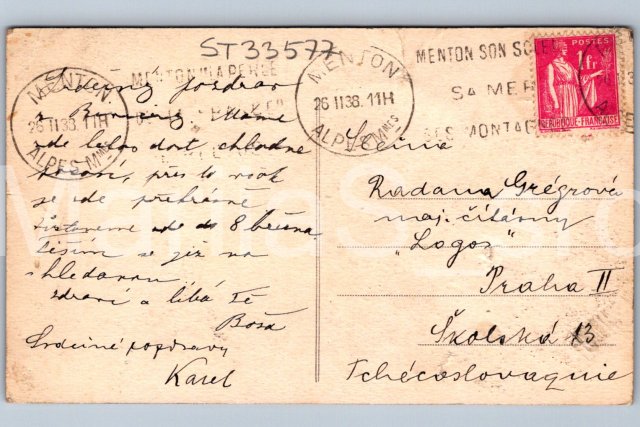 ST33577
MENTON
26 II 38. 11H
ALPES MMES
MENTON LA PERLE
MENTON
26 II 38. 11H
ALPES MMES
MENTON SON SOLEIL
SA MER
SES MONTAG
POSTES
1 fr
REPUBLIQUE FRANÇAISE
Srdečný pozdrav
z Máme
zde dost chladné
počasí, přes to však
se zde překrásně
zde do 8 března
těším se již na
shledanou
zdraví a líbá Tě
Boža
Srdečné pozdravy
Karel
Slečna
Radana Grégrová
maj. čítárny
"Logos"
Praha II
Školská 13
Tchécoslovaquie